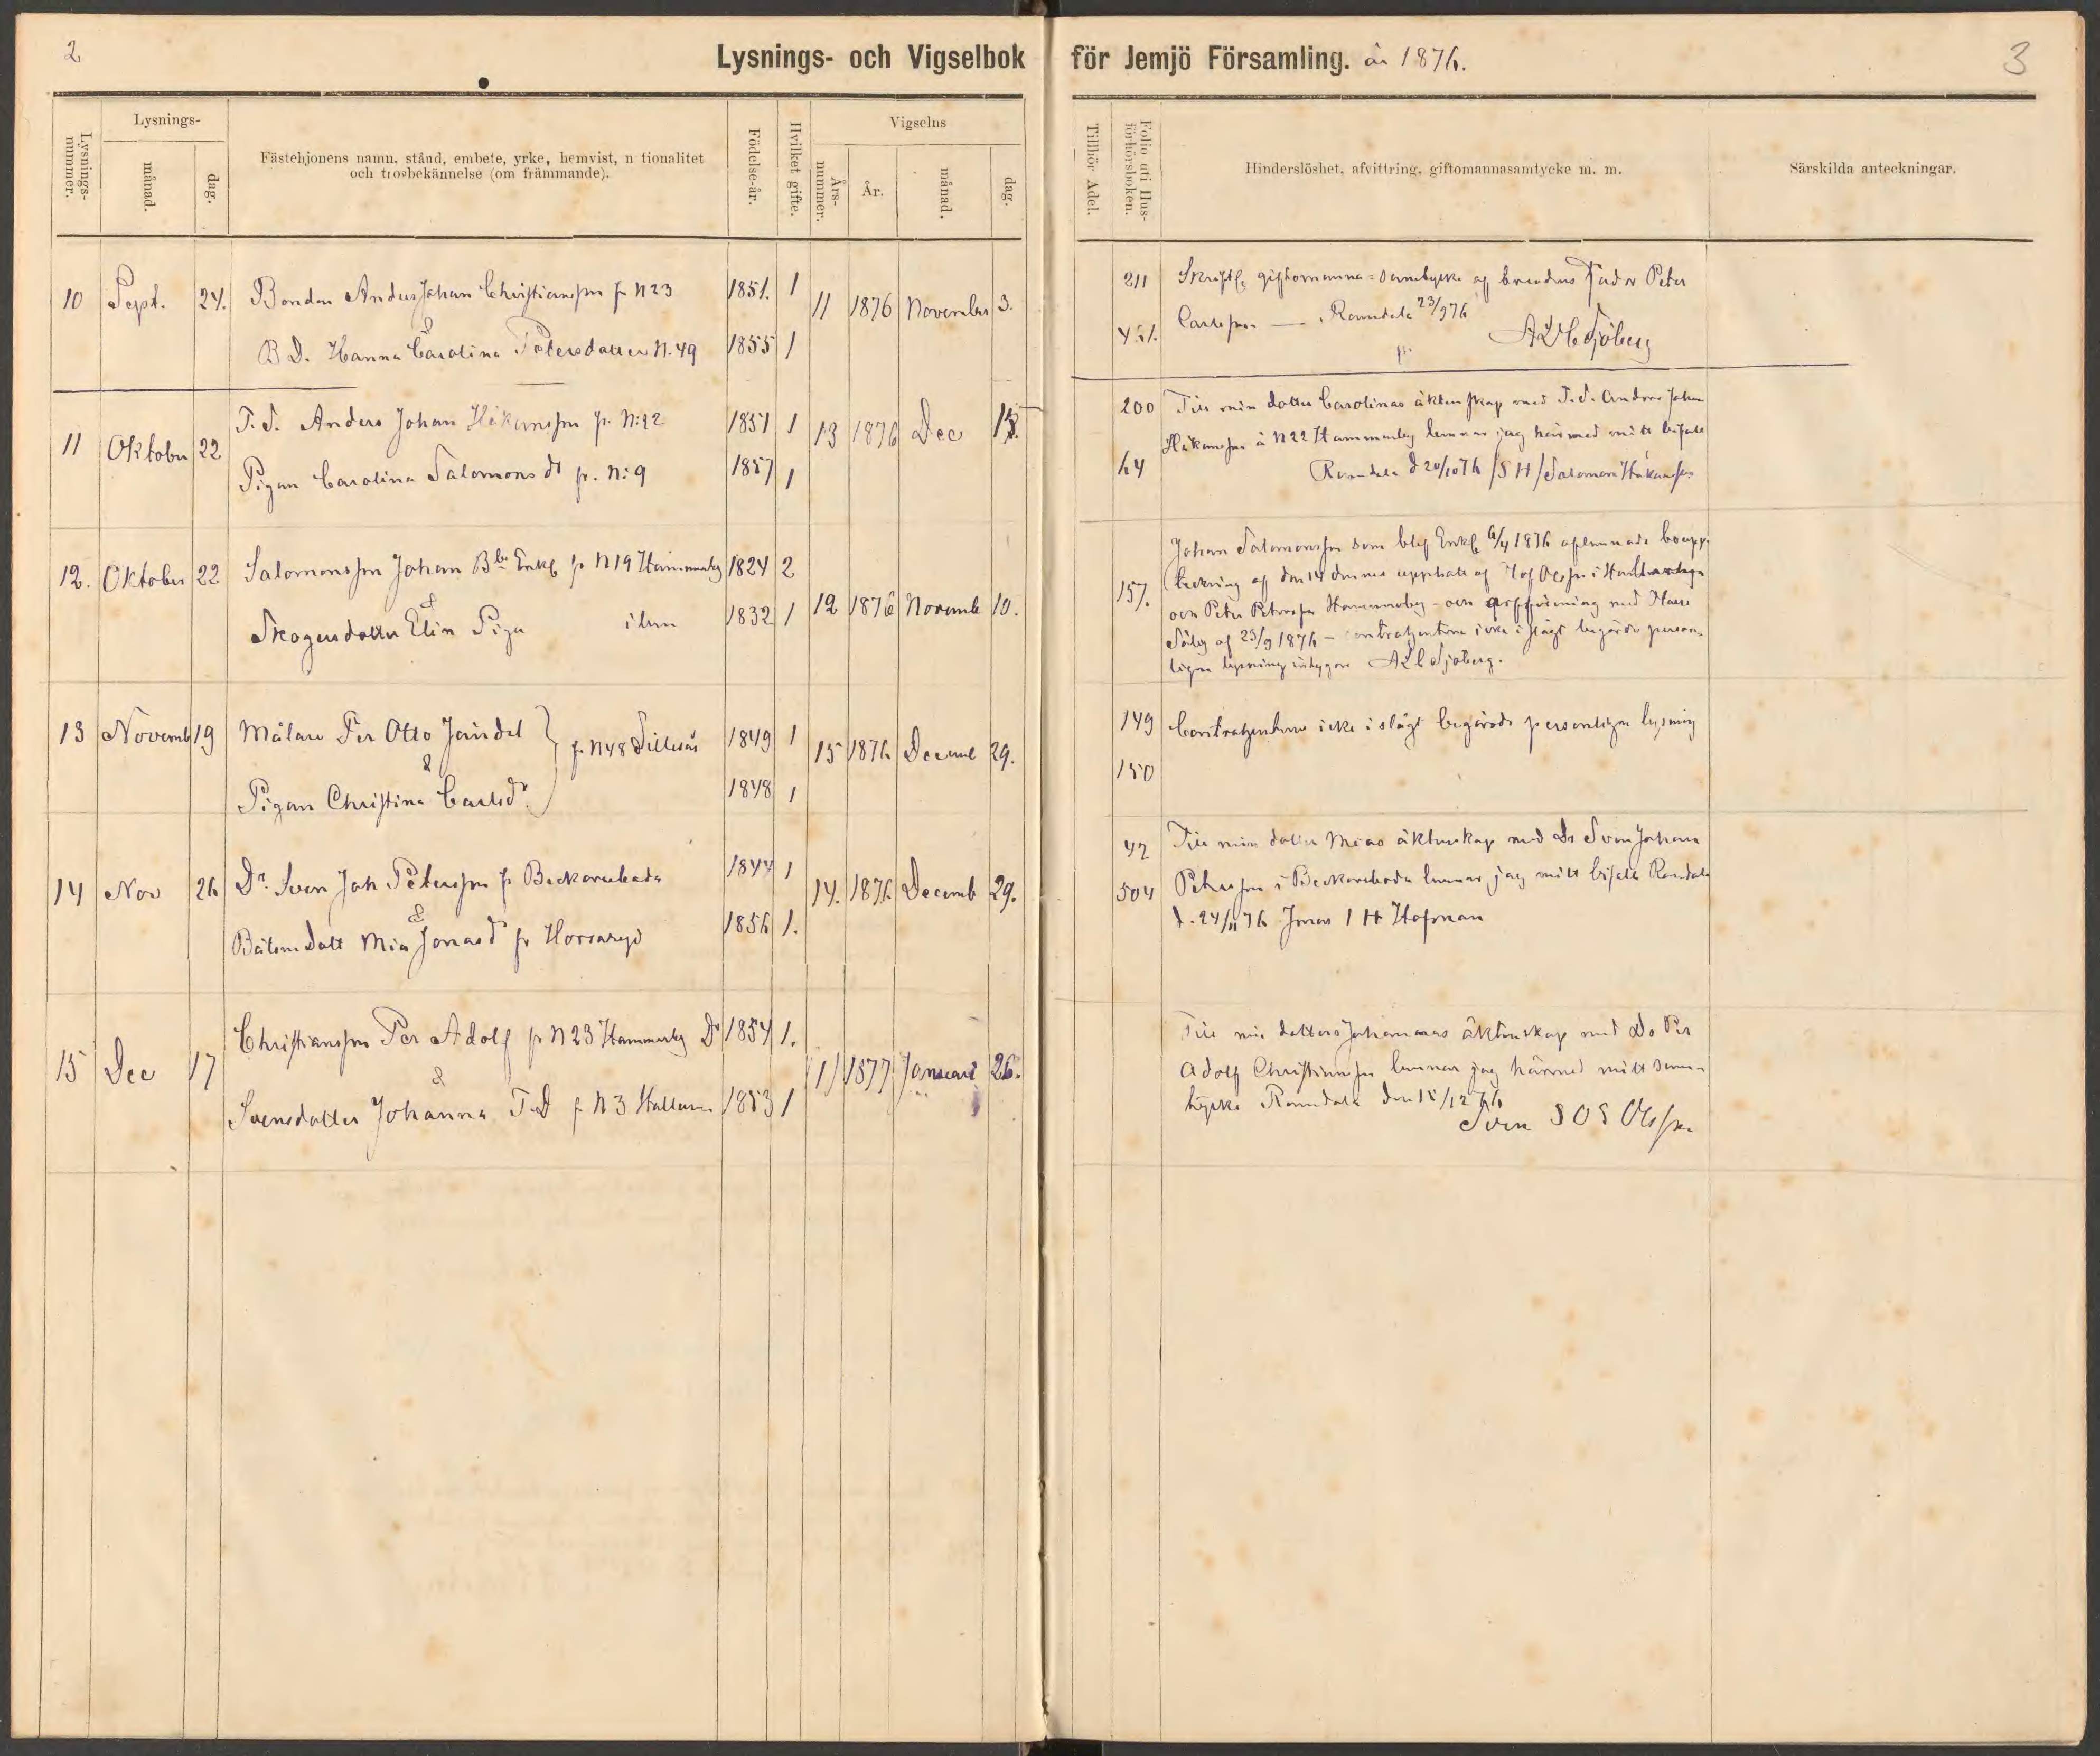 2
Lysnings- och Vigselbok för Jemjö Församling. år 1876.
3
Lysnings-nummer.
Lysnings-
månad.
dag.
Fästehjonens namn, stånd, embete, yrke, hemvist, n tionalitet
och trosbekännelse (om främmande).
Födelse-år.
Hvilket gifte.
Vigselns
Års-nummer.
År.
månad.
dag.
Tillhör Adel.
Folio uti Hus-förhörsboken.
Hinderslöshet, afvittring, giftomannasamtycke m. m.
Särskilda anteckningar.
10 Sept. 24. Bonden Anders Johan Christiansson fr N 23 1851. 1 11 1876 November 3.
&
B D. Hanna Carolina Petersdotter N. 49 1855 1
211 Skriftl. giftomanna-samtycke af brudens fader Peter
451. Carlsson — Ramdala 23/9 76
A L C Sjöberg
11 Oktober 22 T. d. Anders Johan Håkansson fr. N: 22 1851 1 13 1876 Dec
Pigan Carolina Salomons dr fr. N: 9 1857 1
200 Till min dotter Carolinas äktenskap med T. d. Anders Johan
Håkansson å N 22 Hammarby lemnar jag härmed mitt bifall
64 Ramdala d 20/10 76 /S H/ Salomon Håkansson
12. Oktober 22 Salomonsson Johan Enkl fr N 19 Hammarby 1824 2
&
Skogersdotter Elin Piga ibm 1832 1 12 1876 Novemb 10.
Johan Salomonsson som blef Enkl 6/4 1876 aflemnade boupp-
157. teckning af den 14 dennes upprättad af Olsson i
och Peter Petersson Hammarby - och med
af 23/9 1876 - contrahenterna icke i slägt begärde person-
ligen lysning A L C Sjöberg.
13 Novemb 19 Målare Per Otto Jaindel 1849 1 15 1876 Decemb 29.
& fr. N 48
Pigan Christina Carlsdr 1848 1
149 Contrahenterna icke i slägt begärde personligen lysning
150
14 Nov 26 Dr. Sven Joh Petersson fr Beckareboda 1844 1 14. 1876 Decemb 29.
&
Båtsm Dott Mia Jonasd fr Horsaryd 1856 1.
42 Till min dotter Mias äktenskap med Dr Sven Johan
504 Petersson i Beckareboda lemnar jag mitt bifall Ramdala
d. 24/11 76 Jonas I H Hofman
15 Dec 17 Christiansson Per Adolf fr N 23 Hammarby Dr 1854 1.
& 1) 1877 Januari 26.
Svensdotter Johanna T. D fr N 3 1853 1
Till min dotters Johannas äktenskap med Dr Per
Adolf Christiansson lemnar jag härmed mitt sam-
tycke Ramdala den 15/12 76
Sven S O S Olsson